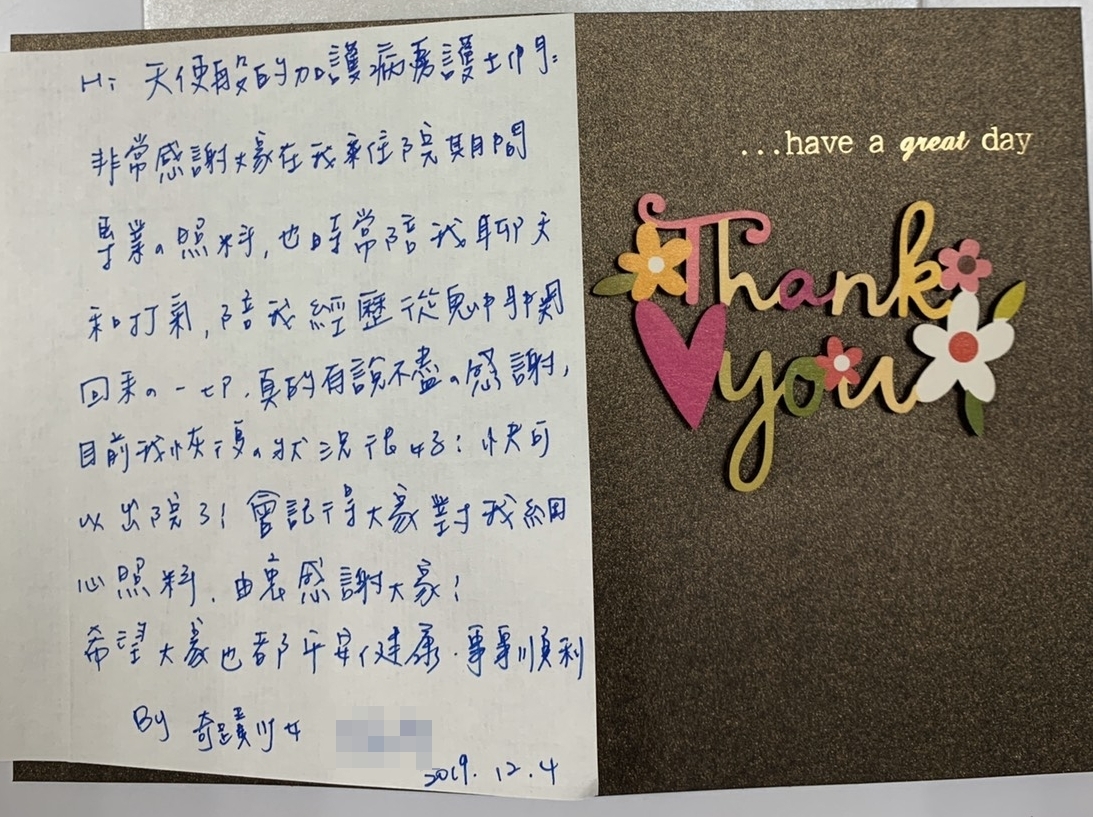 Hi 天使般的加護病房護士們:
非常感謝大家在我來住院期間
專業的照料,也時常陪我聊天
和打氣,陪我經歷從鬼門關
回來的一切.真的有說不盡的感謝,
目前我恢復的狀況很好!快可
以出院了!會記得大家對我細
心照料,由衷感謝大家!
希望大家也都平安健康.事事順利
By 奇蹟少女
2019.12.4
...have a great day
Thank
you